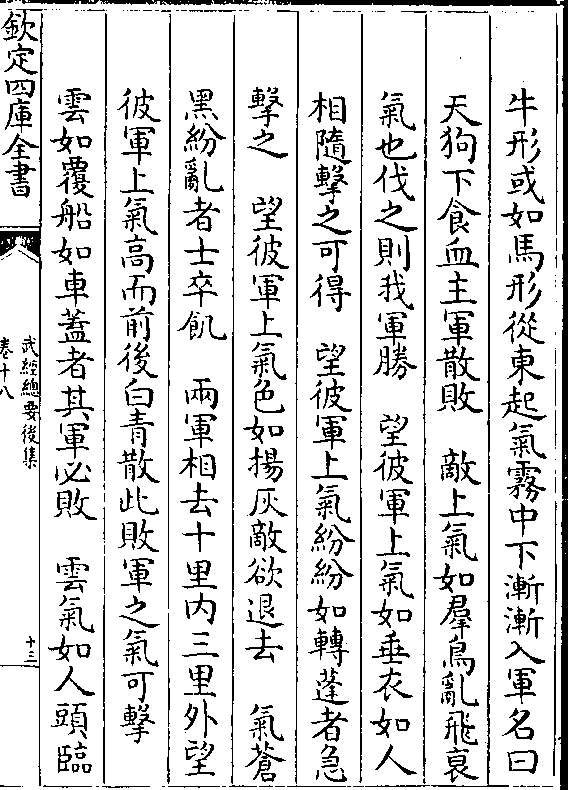 牛形或如馬形從東起氣霧中下漸漸入軍名曰
天狗下食血主軍散敗　敵上氣如羣鳥亂飛衰
氣也伐之則我軍勝　望彼軍上氣如垂衣如人
相隨擊之可得　望彼軍上氣紛紛如轉蓬者急
擊之　望彼軍上氣色如揚灰敵欲退去　氣蒼
黑紛亂者士卒飢　兩軍相去十里内三里外望
彼軍上氣高而前後白青散此敗軍之氣可擊
雲如覆船如車蓋者其軍必敗　雲氣如人頭臨
欽定四庫全書
武經總要後集
卷十八
十三